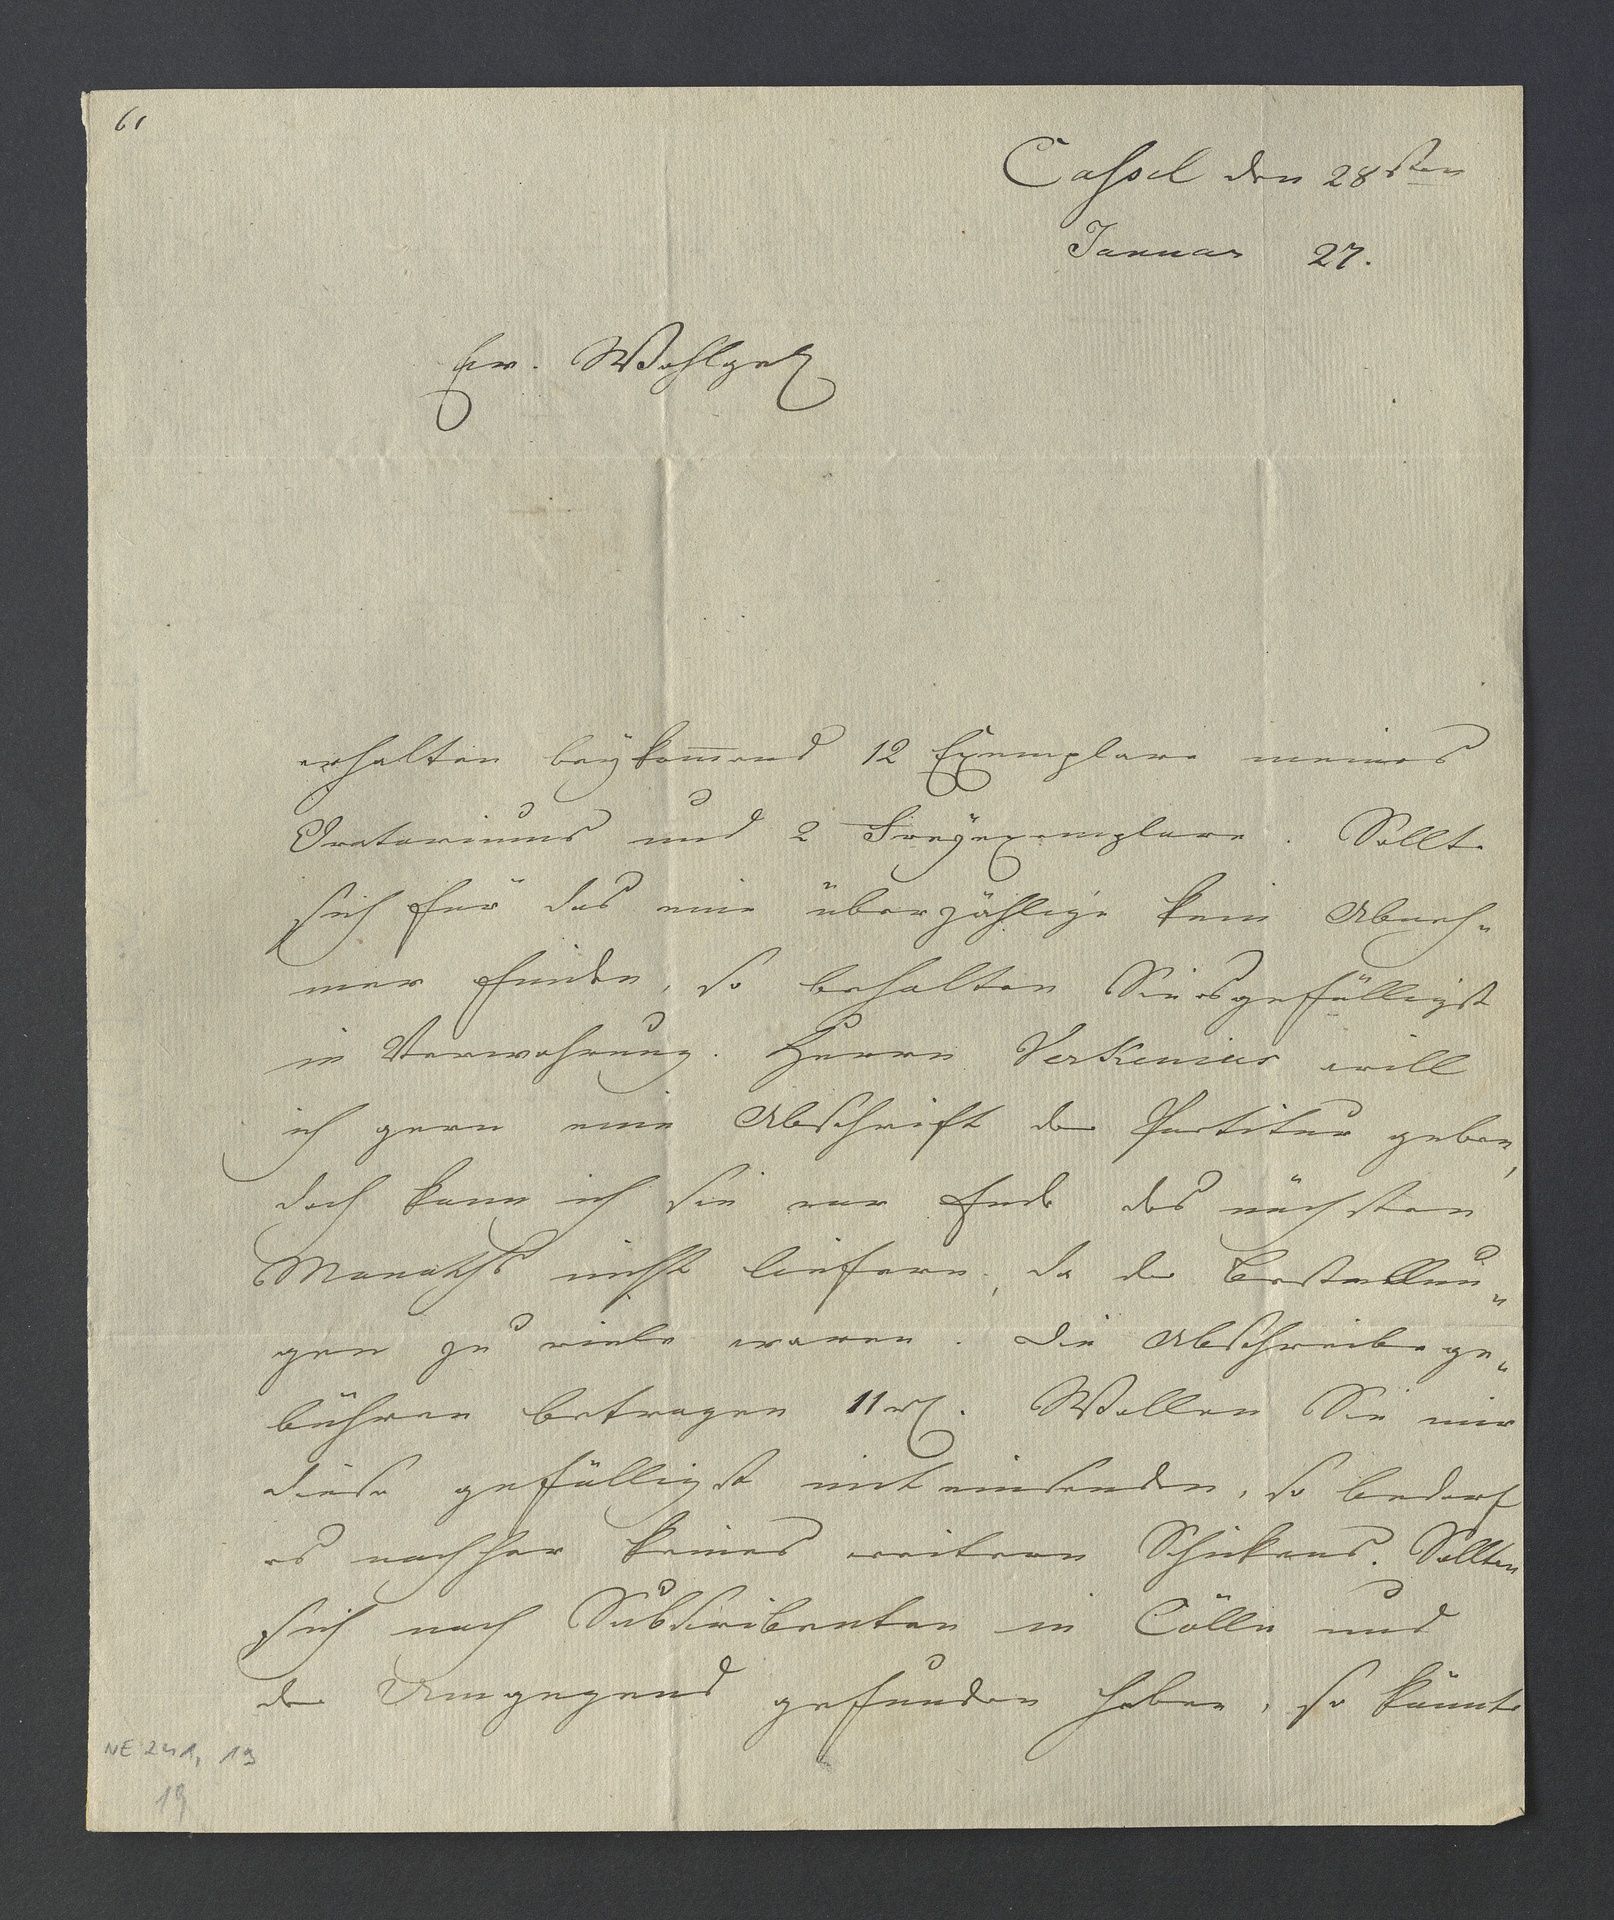 61
Cassel den 28sten
Januar 27.
Ew. Wohlgeb
erhalten beykom̅end 12 Exemplare meines
Oratoriums und 2 Freyexemplare. Sollte
sich für das eine überzählige kein Abneh-
mer finden, so behalten Sie es gefälligst
in Verwahrung. Herrn Verkenius will
ich gern eine Abschrift der Partitur geben,
doch kann ich sie vor Ende des nächsten
Monaths nicht liefern, da der Bestellun-
gen zu viele waren. Die Abschreibege-
bühren betragen 11 rℓ. Wollen Sie mir
diese gefälligst mit einsenden, so bedarf
es nachher keines weitern Schickens. Sollten
sich noch Subscribenten in Cölln und
der Umgegend gefunden haben, so könnte
NE 241, 19
19